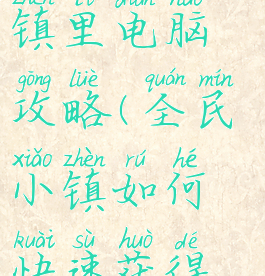 zhèn lǐ diàn nǎo
镇里电脑
gōng lüè quán mín
攻略(全民
xiǎo zhèn rú hé
小镇如何
kuài sù huò dé
快速获得